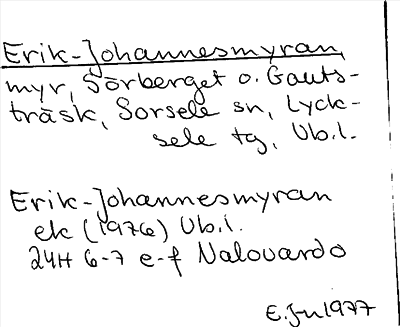 Erik-Johannesmyran,
myr, Sörberget o. Gauts-
träsk, Sorsele sn, Lyck-
sele tg, Vb.l.
Erik-Johannesmyran
ek (1976) Vb.l.
24H 6-7 e-f Nalovardo
E.Ju 1977